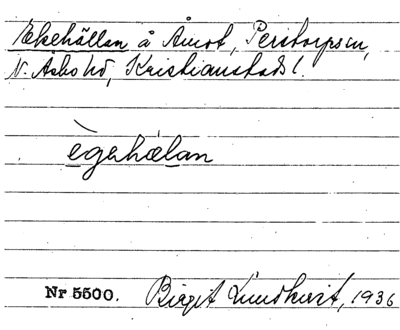 Ekehällan å Åmot, Perstorps sn,
N. Åsbo hd, Kristianstads l.
ègəhælan
Nr 5500. Birgit Lundkvist, 1936